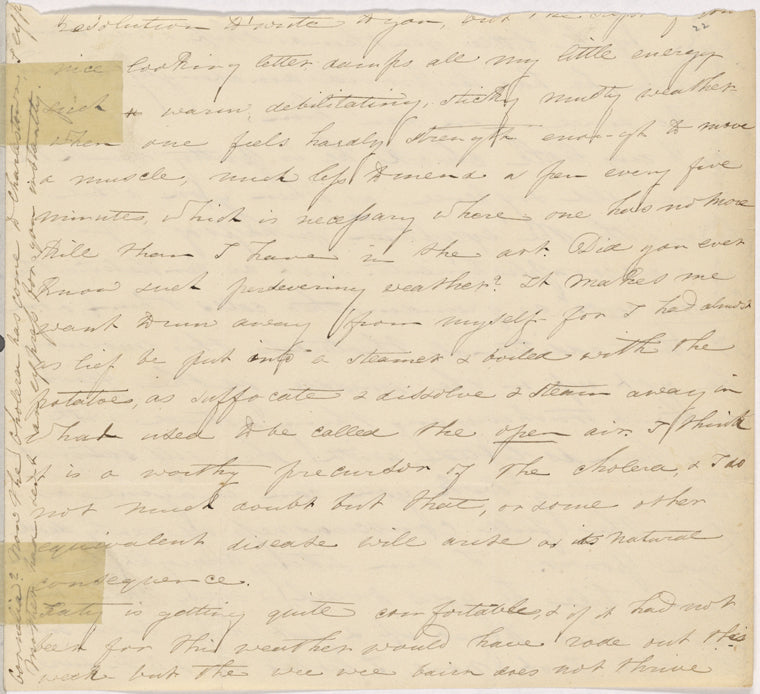 resolution to write to you, but the sight of
22
nice looking letter damps all my little energy
such warm, debilitating, sticky, mutty weather
when one feels hardly strength enough to move
a muscle, much less to mend a pen every five
minutes, which is necessary where one has no more
skill than I have in the art. Did you ever
know such persevering weather? It makes me
want to run away from myself for I had almost
as lief be put into a steamer & boiled with the
potatoes, as suffocate & dissolve & steam away in
what used to be called the open air. I think
it is a worthy precursor of the cholera, & I do
not much doubt but that, or some other
equivalent disease will arise as its natural
consequence.
Katy is getting quite comfortable, & if it had not
been for this weather would have rode out this
week but the wee wee bairn does not thrive
Cornelia? Now the cholera has come to Charlestown, I
Mother have sent an express for you instantly.